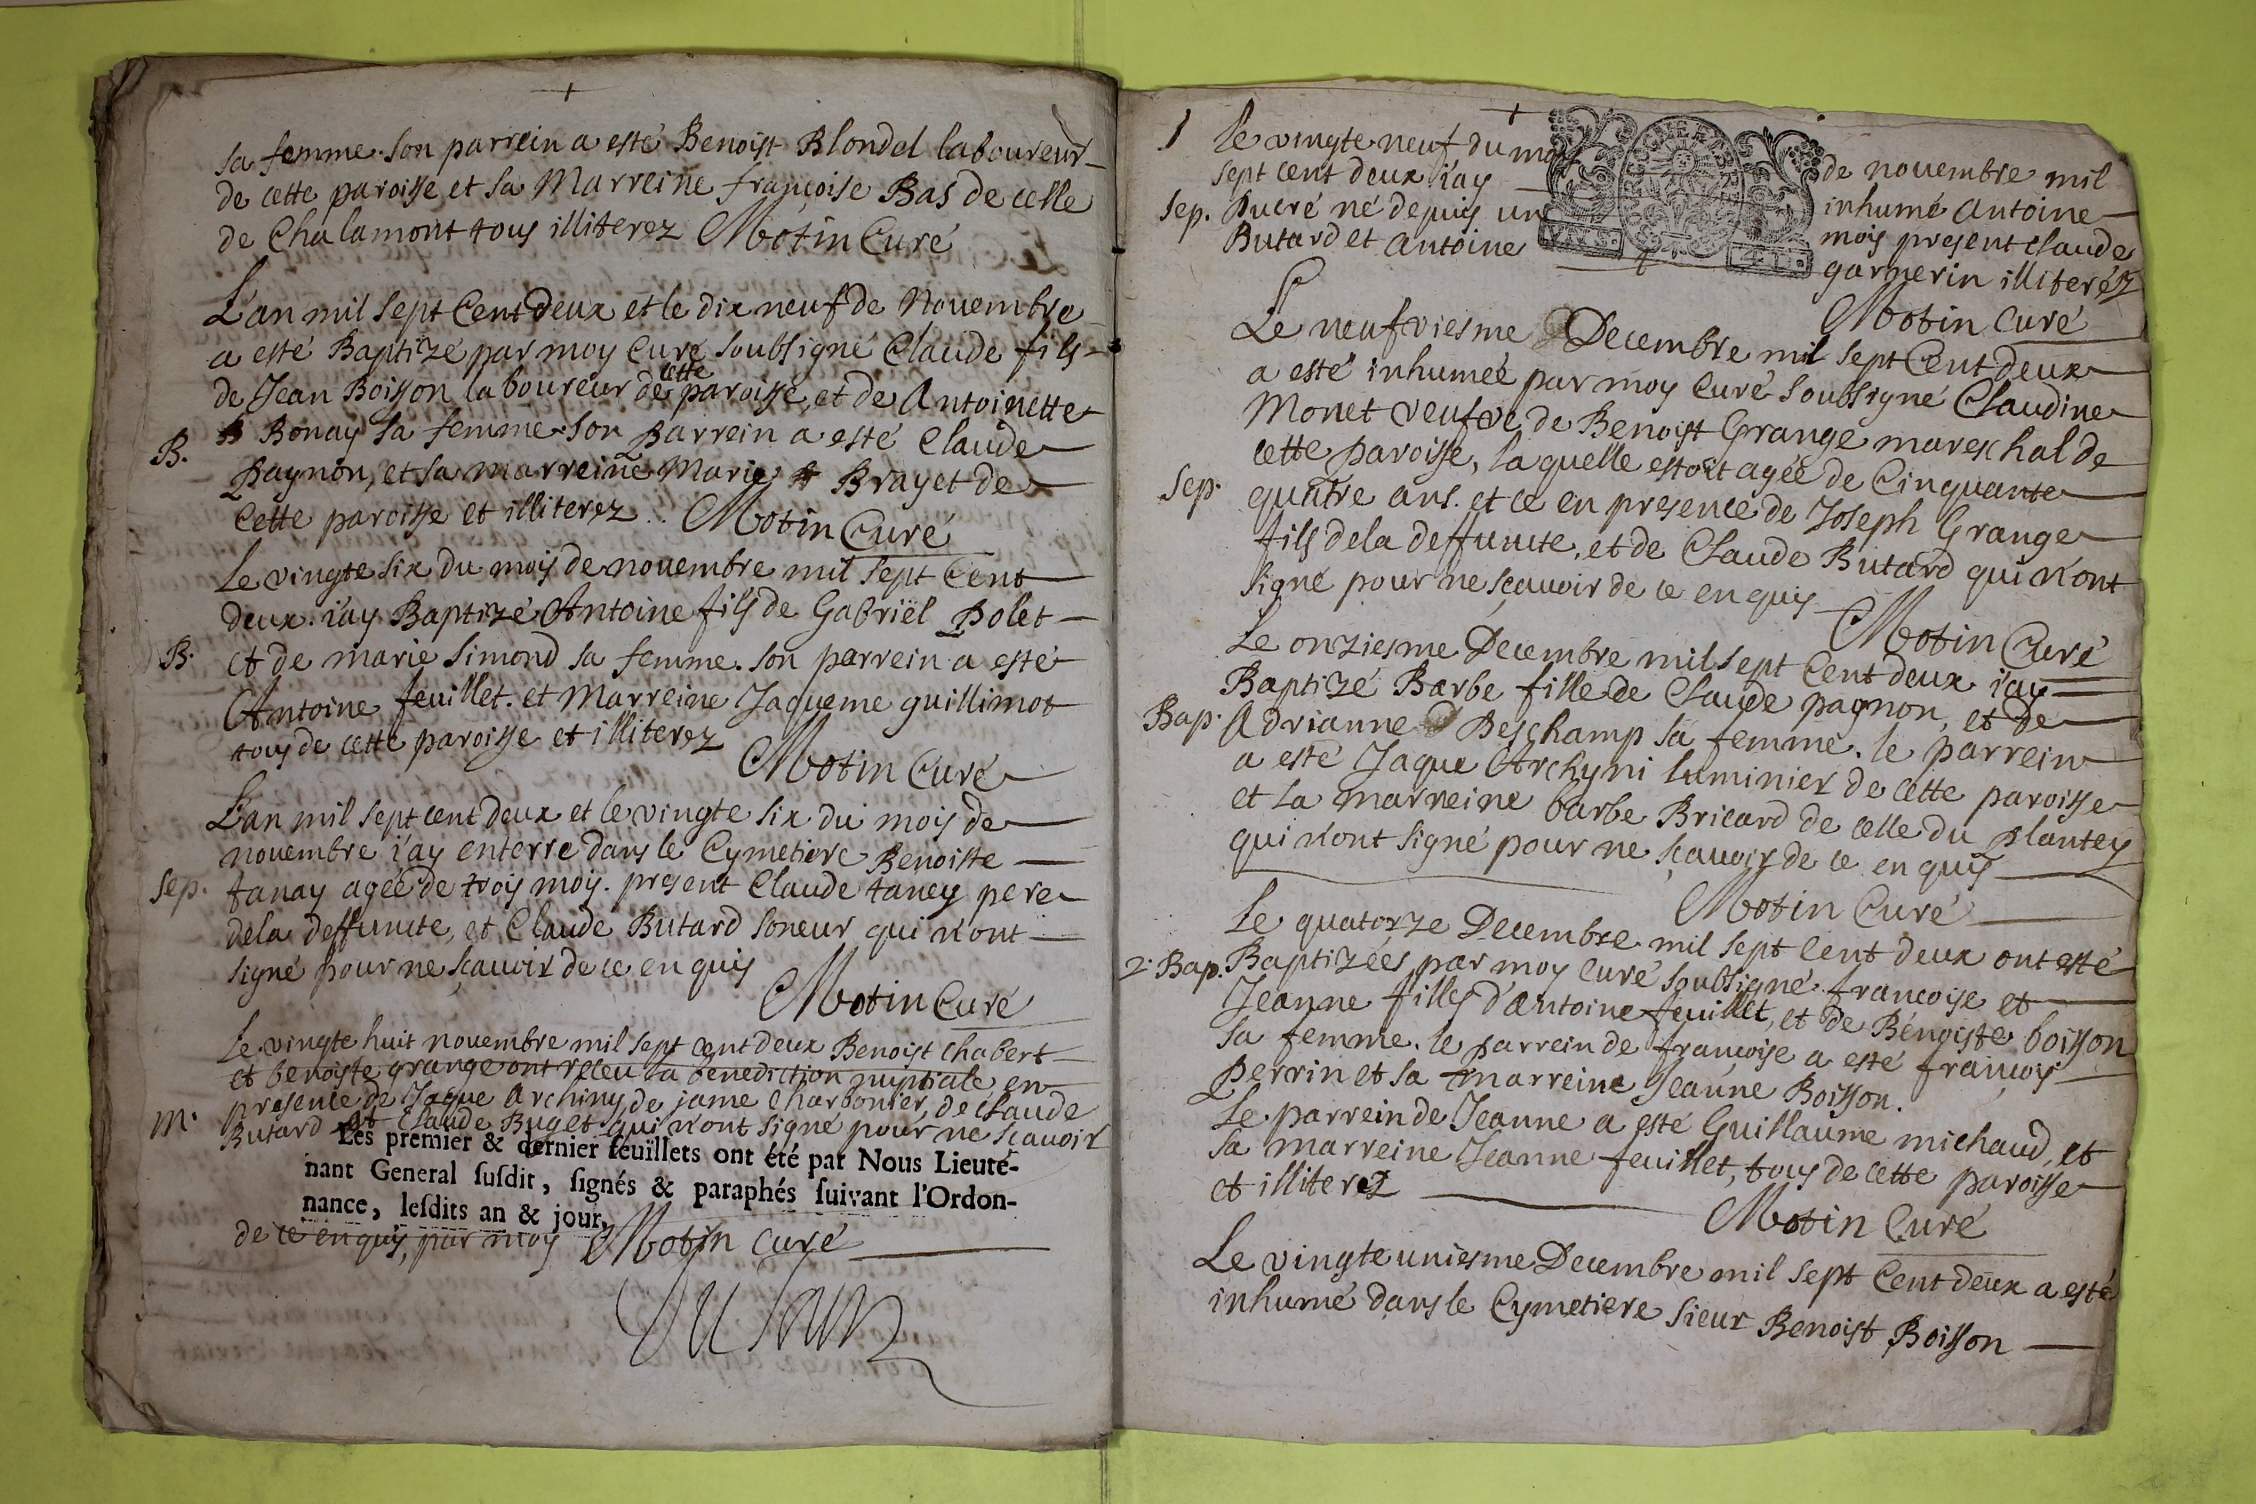 sa femme. son parrein a esté Benoist Blondel laboureur
de cette paroisse et sa Marreine françoise Bas de celle
de Chalamont tous illiterez Motin Curé
L'an mil sept Cent deux et le dix neuf de Novembre
a esté Baptizé par moy Curé soubsigné Claude fils
de Jean Boisson laboureur de cette paroisse, et de Antoinette
Bonay sa femme. son Parrein a esté Claude
B.
Pagnon, et sa marreine Marie Brayet de
Cette paroisse et illiterez. Motin Curé
Le vingte six du mois de novembre mil sept Cent
deux. i'ay Baptizé Antoine fils de Gabriël Polet
B. et de marie Simond sa femme. son parrein a esté
Antoine feuillet. et Marreine Jaqueme guillimot
tous de cette paroisse et illiterez
Motin Curé
L'an mil sept cent deux et le vingte six du mois de
novembre i'ay enterré dans le Cymetiere Benoiste
Sep. tanay agée de trois mois. present Claude taney pere
de la deffuncte, et Claude Butard soneur qui n'ont
signé pour ne sçavoir de ce enquis
Motin Curé
Le vingte huit novembre mil sept cent deux Benoist Chabert
et benoiste grange ont receu la benediction nuptiale en
M. presence de Jaque Archiny, de jame Charbonier, de Claude
Butard et Claude Buget qui n'ont signé pour ne sçavoir
Les premier & dernier feüillets ont été par Nous Lieute-
nant General susdit, signés & paraphés suivant l'Ordon-
nance, lesdits an & jour,
de ce enquis, par moy Motin Curé
1 Le vingte neuf du mois de novembre mil
sept cent deux i'ay inhumé Antoine
Sep. Ducré né depuis un mois present Claude
Butard et Antoine garnerin illiteréz
Motin Curé
Le neufviesme Decembre mil sept Cent deux
a esté inhumée par moy Curé soubsigné Claudine
Monet veufve de Benoist Grange mareschal de
cette paroisse, laquelle estoit agée de Cinquante
Sep. quatre ans. et ce en presence de Joseph Grange
fils de la deffuncte, et de Claude Butard qui n'ont
signé pour ne sçavoir de ce enquis
Motin Curé
Le onziesme Decembre mil sept Cent deux i'ay
Baptizé Barbe fille de Claude pagnon, et de
Bap. Adrianne Deschamp sa femme. le parrein
a esté Jaque Archyni luminier de cette paroisse
et la marreine barbe Bricard de celle du Plantey
qui n'ont signé pour ne sçavoir de ce enquis
Motin Curé
Le quatorze Decembre mil sept Cent deux ont esté
2. Bap. Baptizées par moy curé soubsigné françoise et
Jeanne filles d'Antoine feuillet, et de Bénoiste boisson
sa femme. le parrein de françoise a esté françois
Perrin et sa marreine Jeanne Boisson.
Le parrein de Jeanne a esté Guillaume michaud, et
sa marreine Jeanne feuillet, tous de cette paroisse
et illiterez
Motin Curé
Le vingte uniesme Decembre mil sept Cent deux a esté
inhumé dans le Cymetiere sieur Benoist Boisson